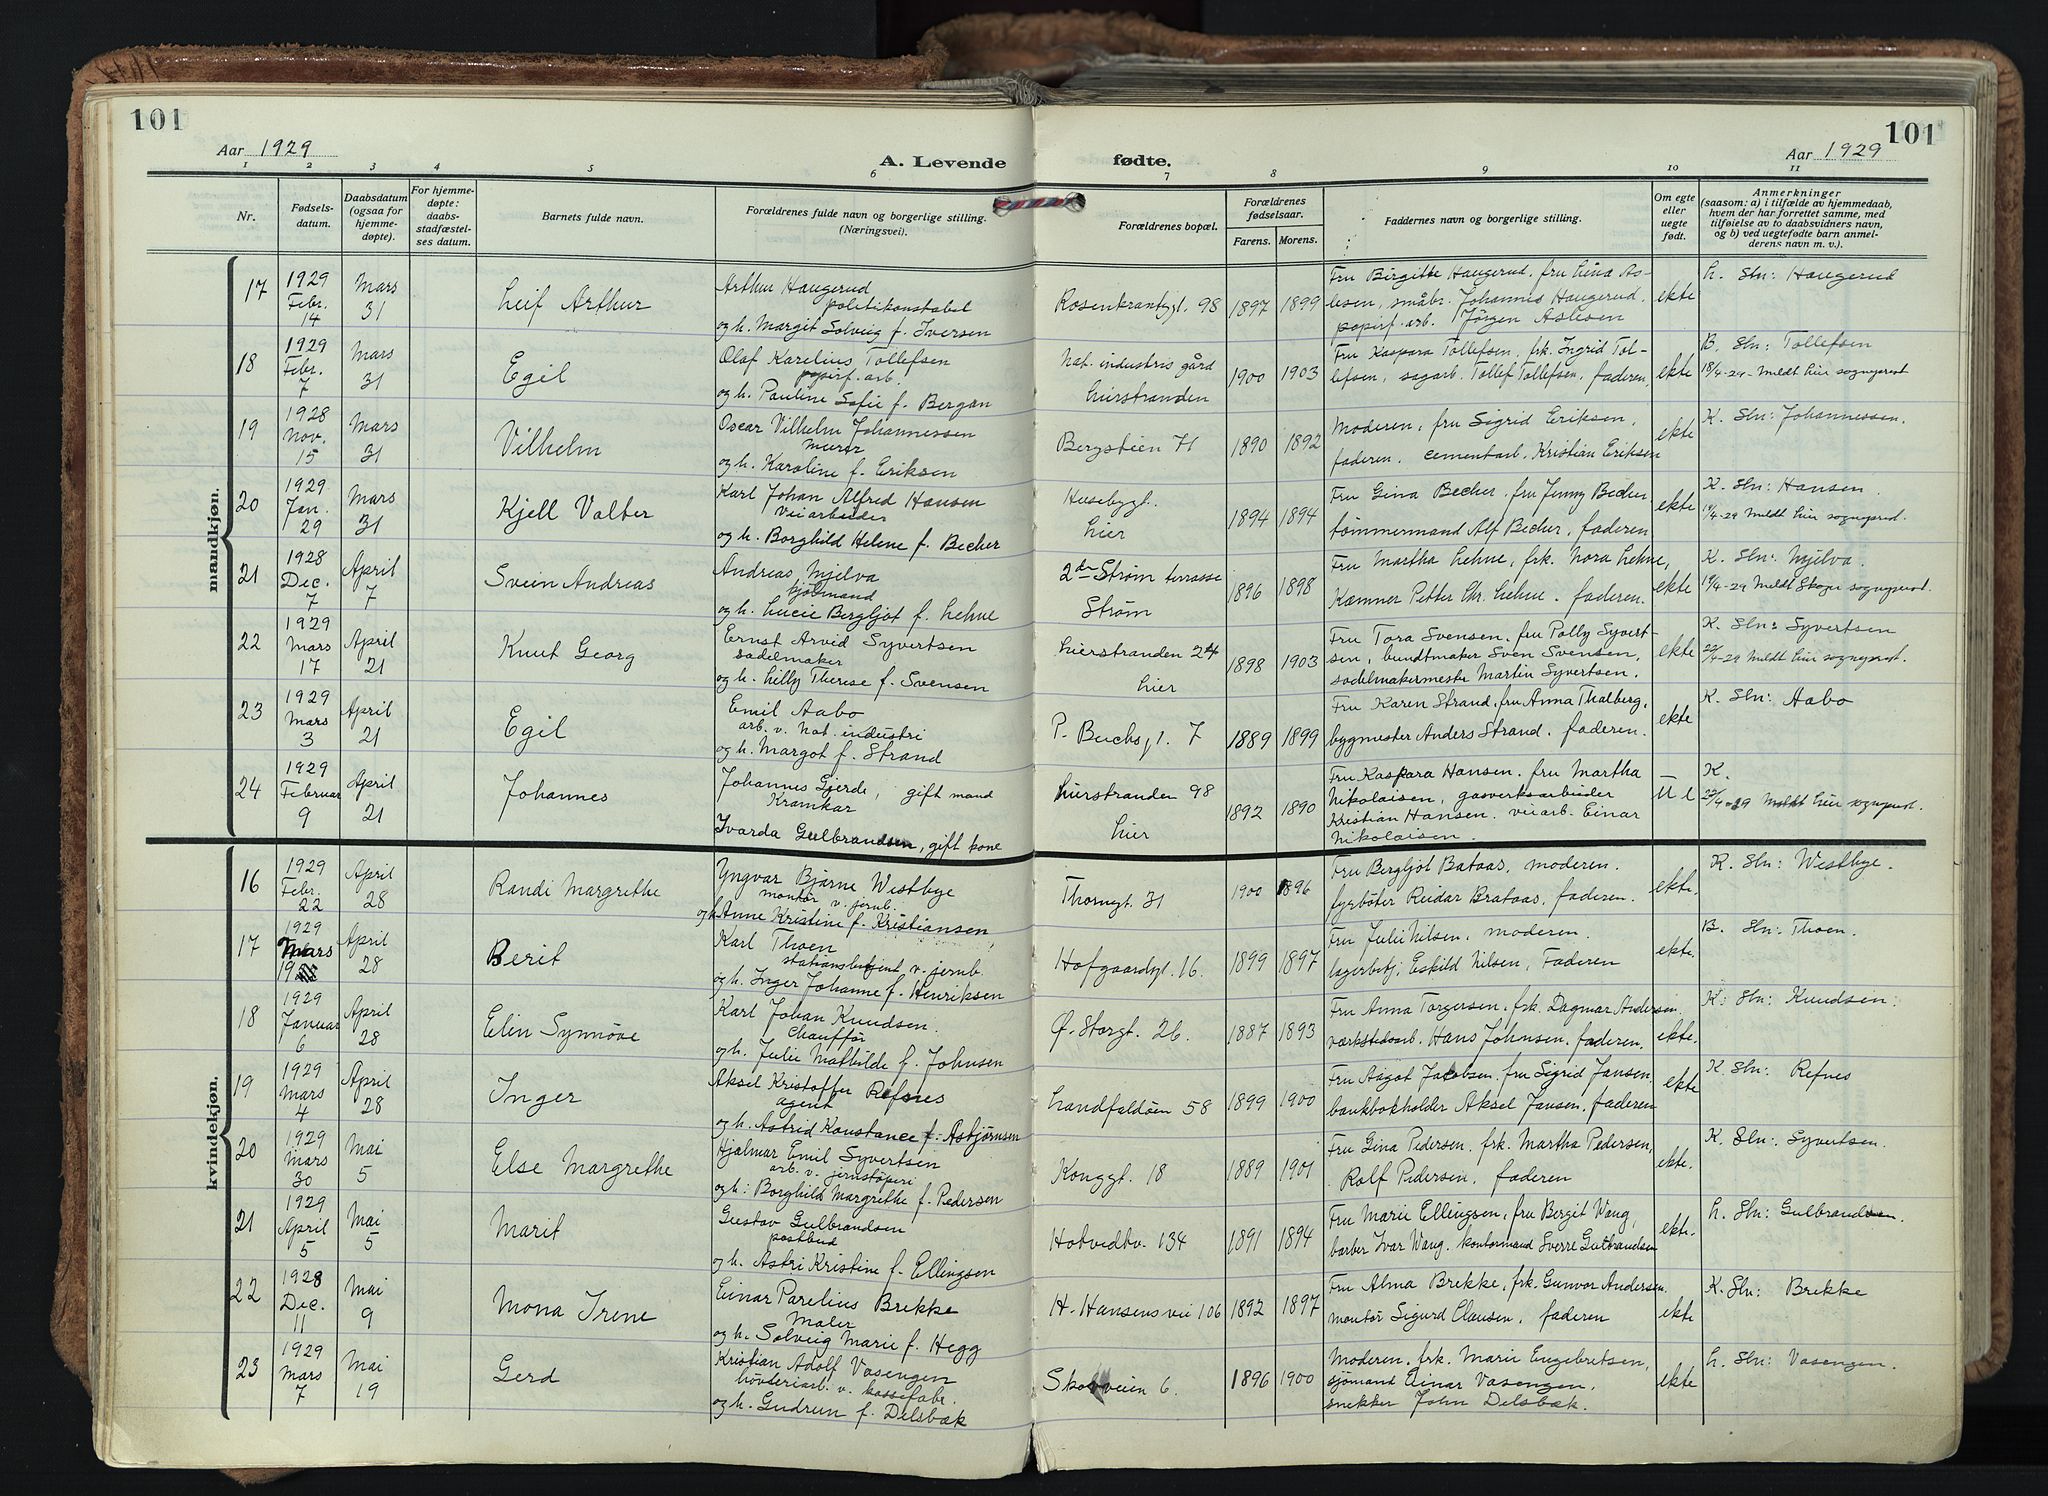 101
Aar 1929
A. Levende
1 2 3 4 5 6
Nr.
Fødsels-
datum.
Daabsdatum
(ogsaa for
hjemme-
døpte).
For hjemme-
døpte:
daabs-
stadfæstel-
ses datum.
Barnets fulde navn.
Forældrenes fulde navn og borgerlige stilling.
(Næringsvei).
101
Aar 1929
fødte.
7 8 9 10 11
Forældrenes bopæl.
Forældrenes
fødselsaar.
Farens. Morens.
Faddernes navn og borgerlige stilling.
Om egte
eller
uegte
født.
Anmerkninger
(saasom: a) i tilfælde av hjemmedaab,
hvem der har forrettet samme, med
tilføielse av to daabsvidners navn,
og b) ved uegtefødte barn anmel-
derens navn m. v.).
mandkjøn.
17 1929 Febr. 14 Mars 31 Leif Arthur
Arthur Haugerud
politikonstabel
og h. Margit Solveig f. Iversen
Rosenkrantzgt. 98 1897 1899
Fru Birgitte Haugerud, fru Lina As-
lesen, småbr. Johannis Haugerud,
papirf. arb. Jørgen Aslesen
ekte
L. Sln: Haugerud
18 1929 Febr. 7 Mars 31 Egil
Olaf Karelius Tollefsen
papirf. arb.
og h. Pauline Sofie f. Bergan
Nat. industris gård
Lierstranden 1900 1903
Fru Kaspara Tollefsen, frk. Ingrid Tol-
lefsen, sagarb. Tollef Tollefsen, faderen,
ekte
B. Sln: Tollefsen
18/4-29 Meldt Lier sogneprest
19 1928 Nov. 15 Mars 31 Vilhelm
Oscar Vilhelm Johannessen
murer
og h. Karoline f. Eriksen
Bergstien 71 1890 1892
Moderen, fru Sigrid Eriksen,
faderen, cementarb. Kristian Eriksen
ekte
K. Sln: Johannessen.
20 1929 Jan. 29 Mars 31 Kjell Valter
Karl Johan Alfred Hansen
veiarbeider
og h. Borghild Helene f. Becher
Husebygt.
Lier 1894 1894
Fru Gina Becher, fru Jenny Becher
tømmermand Alf Becher, faderen
ekte
K. Sln: Hansen.
19/4-29 Meldt Lier sogneprest.
21 1928 Dec. 7 April 7 Svein Andreas
Andreas Mjelva
sjømand
og h. Lucie Bergljot f. Lehne
2den Strøm terrasse
Strøm 1896 1898
Fru Martha Lehne, frk. Nora Lehne,
Kæmner Petter Chr. Lehne, faderen.
ekte
K. Sln: Mjelva.
19/4-29 Meldt Skoger sogneprest.
22 1929 Mars 17 April 21 Knut Georg
Ernst Arvid Syvertsen
sadelmaker
og h. Lilly Therese f. Svensen
Lierstranden 24
Lier 1898 1903
Fru Tora Svensen, fru Polly Syvert-
sen, bundtmaker Sven Svensen,
sadelmakermester Martin Syvertsen.
ekte
K. Sln: Syvertsen
22/4-29 Meldt Lier sogneprest.
23 1929 Mars 3 April 21 Egil
Emil Aabo
arb. v. Nat. industri
og h. Margot f. Strand
P. Buchsgt. 7 1889 1899
Fru Karen Strand, fru Anna Thalberg,
bygmester Anders Strand, faderen.
ekte
K. Sln: Aabo
24 1929 Februar 9 April 21 Johannes
Johannes Gjerde, gift mand
Kramkar
Ivarda Gulbrandsen, gift kone
Lierstranden 98
Lier 1892 1890
Fru Kaspara Hansen, fru Martha
Nikolaisen, gasverksarbeider
Kristian Hansen, veiarb. Einar
Nikolaisen.
K.
22/4-29 Meldt Lier sogneprest.
kvindekjøn.
16 1929 Febr. 22 April 28 Randi Margrethe
Yngvar Bjarne Westbye
montør v. jernb.
og h. Anne Kristine f. Kristiansen,
Thornegt. 31 1900 1896
Fru Bergljot Bataas, moderen.
fyrbøter Reidar Brataas, faderen.
ekte.
K. Sln: Westbye.
17 1929 Mars 19 April 28 Berit
Karl Thoen
stationsbetjent v. jernb.
og h. Inger Johanne f. Henriksen
Hofgaardsgt. 16. 1899 1897
Fru Julie Nilsen, moderen.
lagerbetj. Eskild Nilsen, Faderen
ekte.
B. Sln: Thoen.
18 1929 Januar 6 April 28 Elin Synnöve
Karl Johan Knudsen.
Chauffør
og h. Julie Mathilde f. Johnsen
Ø. Storgt. 26. 1887 1893
Fru Anna Torgersen, frk. Dagmar Andersen.
værkstedsarb. Hans Johnsen, faderen.
ekte.
K. Sln: Knudsen.
19 1929 Mars 4 April 28 Inger
Aksel Kristoffer Refsnes
agent
og h. Astrid Konstance f: Asbjørnsen
Landfaldøen 58 1899 1900
Fru Aagot Jacobsen, fru Sigrid Jansen,
bankbokholder Aksel Jansen, faderen
ekte
K. Sln: Refnes
20 1929 Mars 30 Mai 5 Else Margrethe
Hjalmar Emil Syvertsen
arb. v. jernstøperi
og h: Borghild Margrethe f. Pedersen
Konggt. 18 1889 1901
Fru Gina Pedersen, frk. Martha Pedersen,
Rolf Pedersen, faderen
ekte.
K. Sln: Syvertsen.
21 1929 April 5 Mai 5 Marit
Gustav Gulbrandsen
postbud
og h. Astri Kristine f. Ellingsen
Hotvedtv. 134 1891 1894
Fru Marie Ellingsen, fru Bergit Wang,
barber Ivar Wang, kontormand Sverre Gulbrandsen
ekte.
L. Sln: Gulbrandsen.
22 1928 Dec. 11 Mai 9 Mona Irene
Einar Parelius Brekke
Maler
og h. Solveig Marie f. Hegg
H. Hansens vei 106 1892 1897
Fru Alma Brekke, frk. Gunvor Andersen,
montör Sigurd Clausen, faderen
ekte
K. Sln: Brekke
23 1929 Mars 7 Mai 19 Gerd
Kristian Adolf Vasengen
høvleriarb. v. kassefabr.
og h. Gudrun f. Delsbæk
Skogveien 6. 1896 1900
Moderen, frk. Marie Engebretsen,
sjømand Einar Vasengen,
snekker John Delsbæk.
ekte
L. Sln: Vasengen.